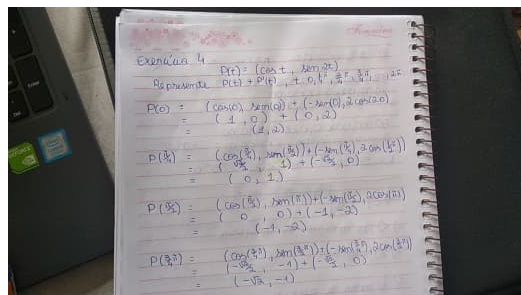 Exercício 4
P(t) = (cos t, sen 2t)
Represente P(t) + P'(t), t 0, π/4, 2/4 π, 3/4 π, ..., 2π
P(0) = (cos(0), sen(0)) + (-sen(0), 2cos(2.0)
= (1, 0) + (0, 2)
= (1, 2)
P(π/4) = (cos(π/4), sen(π/2)) + (-sen(π/4), 2cos(π/2))
= (√2/2, 1) + (-√2/2, 0)
= (0, 1)
P(π/2) = (cos(π/2), sen(π)) + (-sen(π/2), 2cos(π))
= (0, 0) + (-1, -2)
= (-1, -2)
P(3/4 π) = (cos(3/4 π), sen(3/2 π)) + (-sen(3/4 π), 2cos(3/2 π))
= (-√2/2, -1) + (-√2/2, 0)
= (-√2, -1)